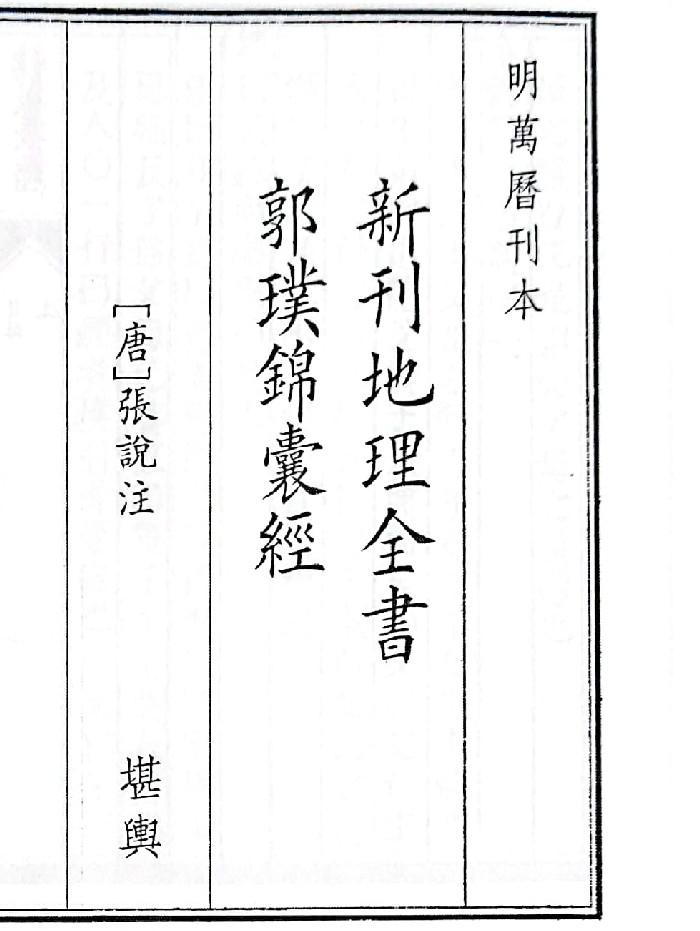 明萬曆刊本
新刊地理全書
郭璞錦囊經
[唐]張說注
堪輿